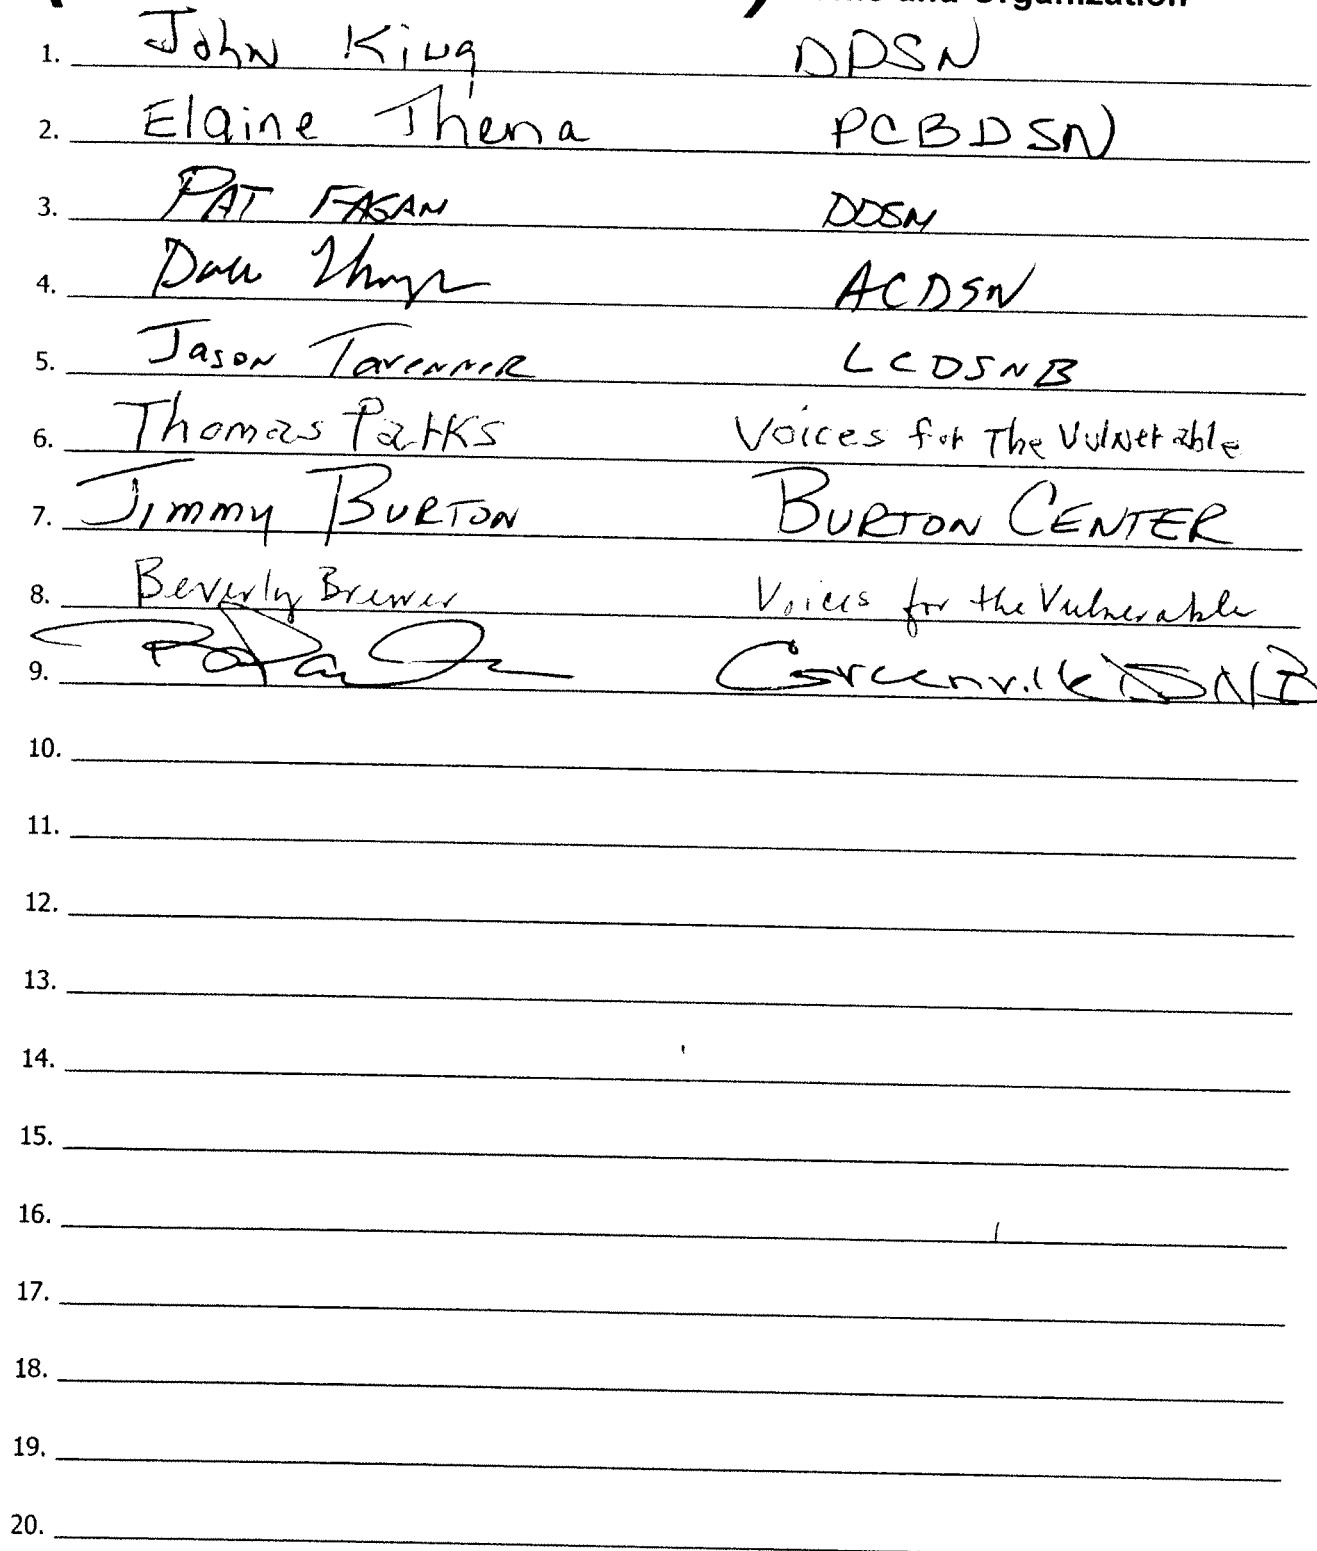 and Organization
1. John King DDSN
2. Elaine Thena PCBDSN
3. PAT FAGAN DDSN
4. ACDSN
5. Jason Tavenner LCDSNB
6. Thomas Parks Voices for The Vulnerable
7. Jimmy BURTON BURTON CENTER
8. Beverly Brewer Voices for the Vulnerable
9. Greenville DSNB
10.
11.
12.
13.
14.
15.
16.
17.
18.
19.
20.